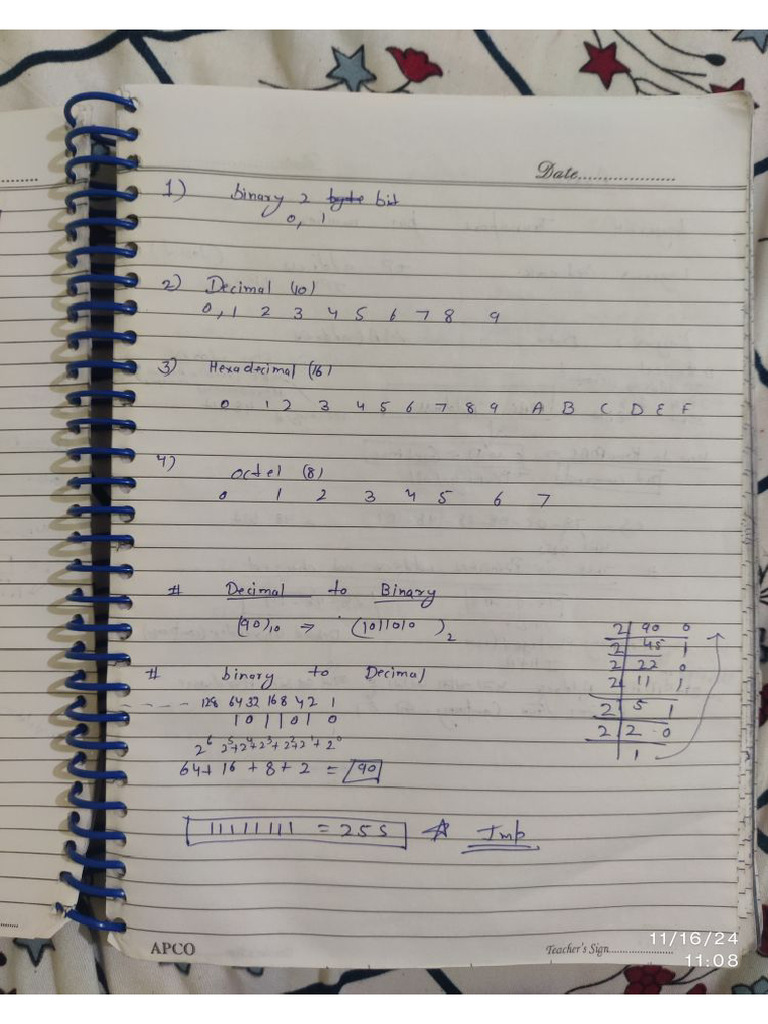 Date....................
1) binary 2 byte bit
0, 1
2) Decimal (10)
0, 1 2 3 4 5 6 7 8 9
3) Hexadecimal (16)
0 1 2 3 4 5 6 7 8 9 A B C D E F
4) octel (8)
0 1 2 3 4 5 6 7
# Decimal to Binary
(90)10 → (1011010)2
2 90 0
2 45 1
2 22 0
2 11 1
2 5 1
2 2 0
1
# binary to Decimal
128 64 32 16 8 4 2 1
1 0 1 1 0 1 0
2^6 2^5+2^4+2^3+2^2+2^1+2^0
64+ 16 + 8 + 2 = 90
11111111 = 255 ☆ Imp
APCO
Teacher's Sign....................
11/16/24
11:08